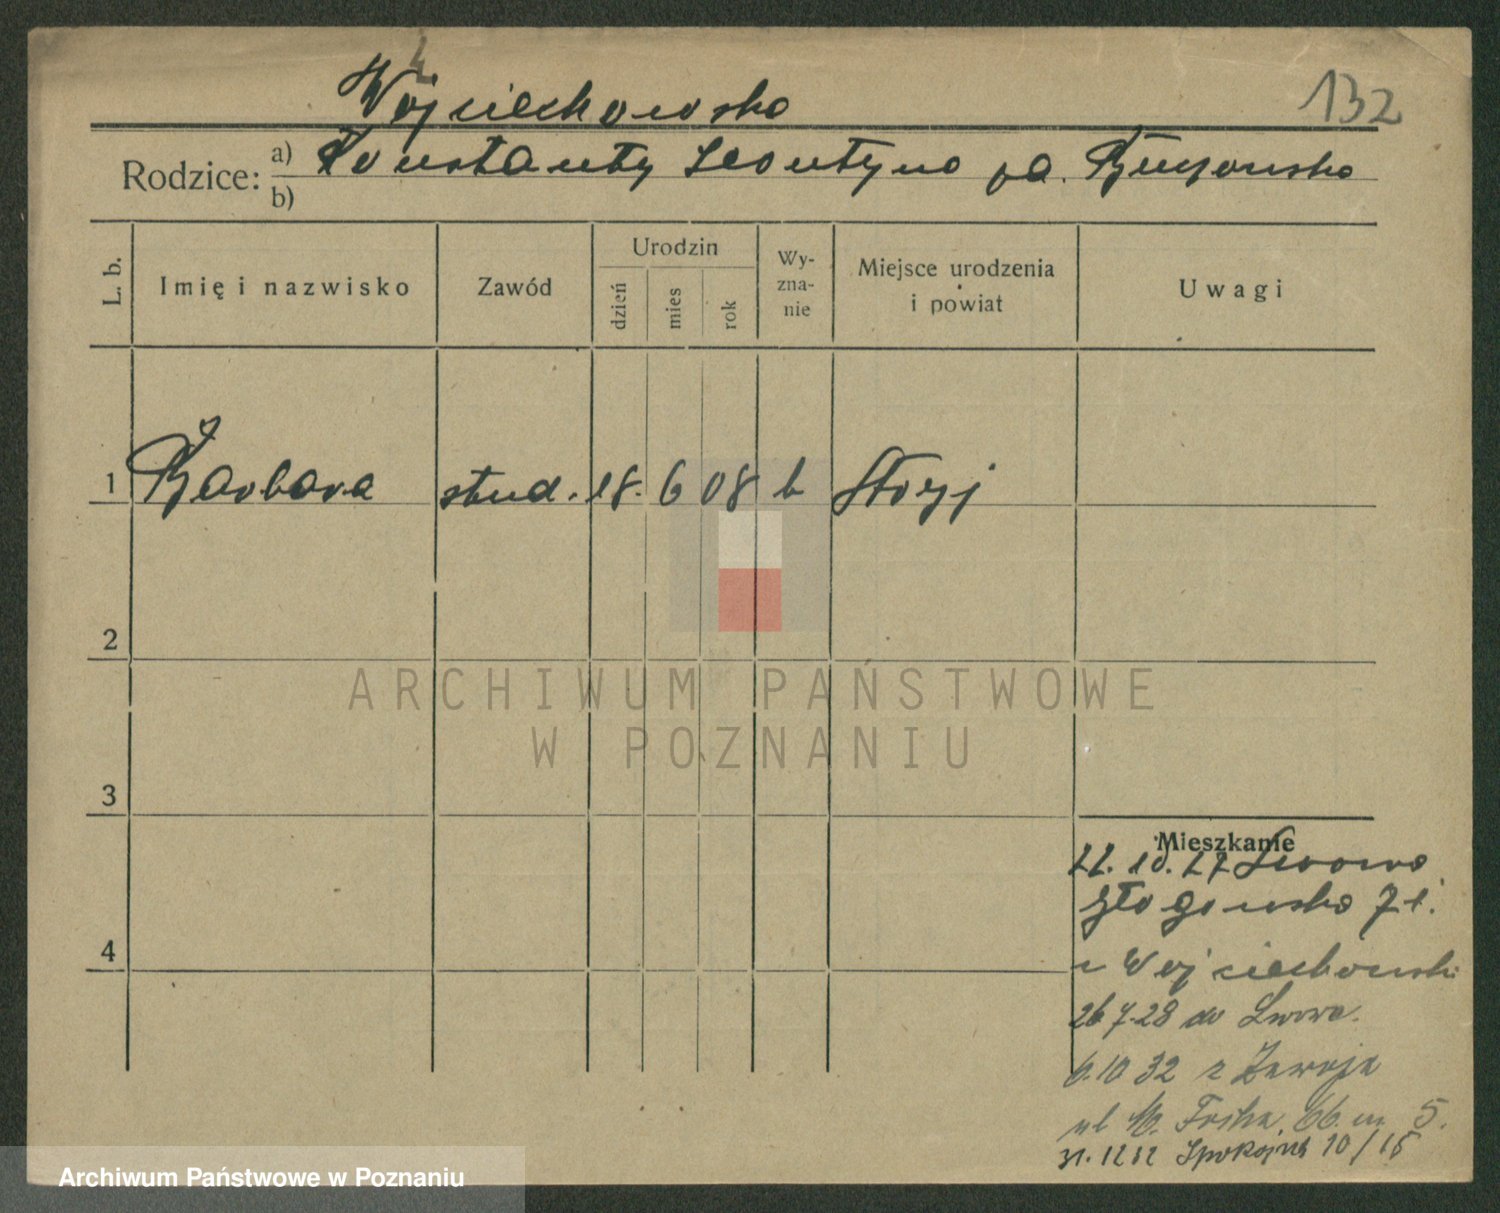 Wojciechowska
132
Rodzice: a) Konstanty Leontyna pa.
b)
L. b. Imię i nazwisko Zawód Urodzin dzień mies rok Wy-zna-nie Miejsce urodzenia i powiat Uwagi
1 Barbara stud. 18. 6 08 k Stryj
2
ARCHIWUM PAŃSTWOWE
W POZNANIU
3
Mieszkanie
22. 10. 27 Lwowa
Głogowska 71.
Wojciechowski
26.7.28 do Lwowa.
6.10 32 z Zawoja
ul M. Focha 66. m 5.
31.1212 Spokojna 10/15
4
Archiwum Państwowe w Poznaniu